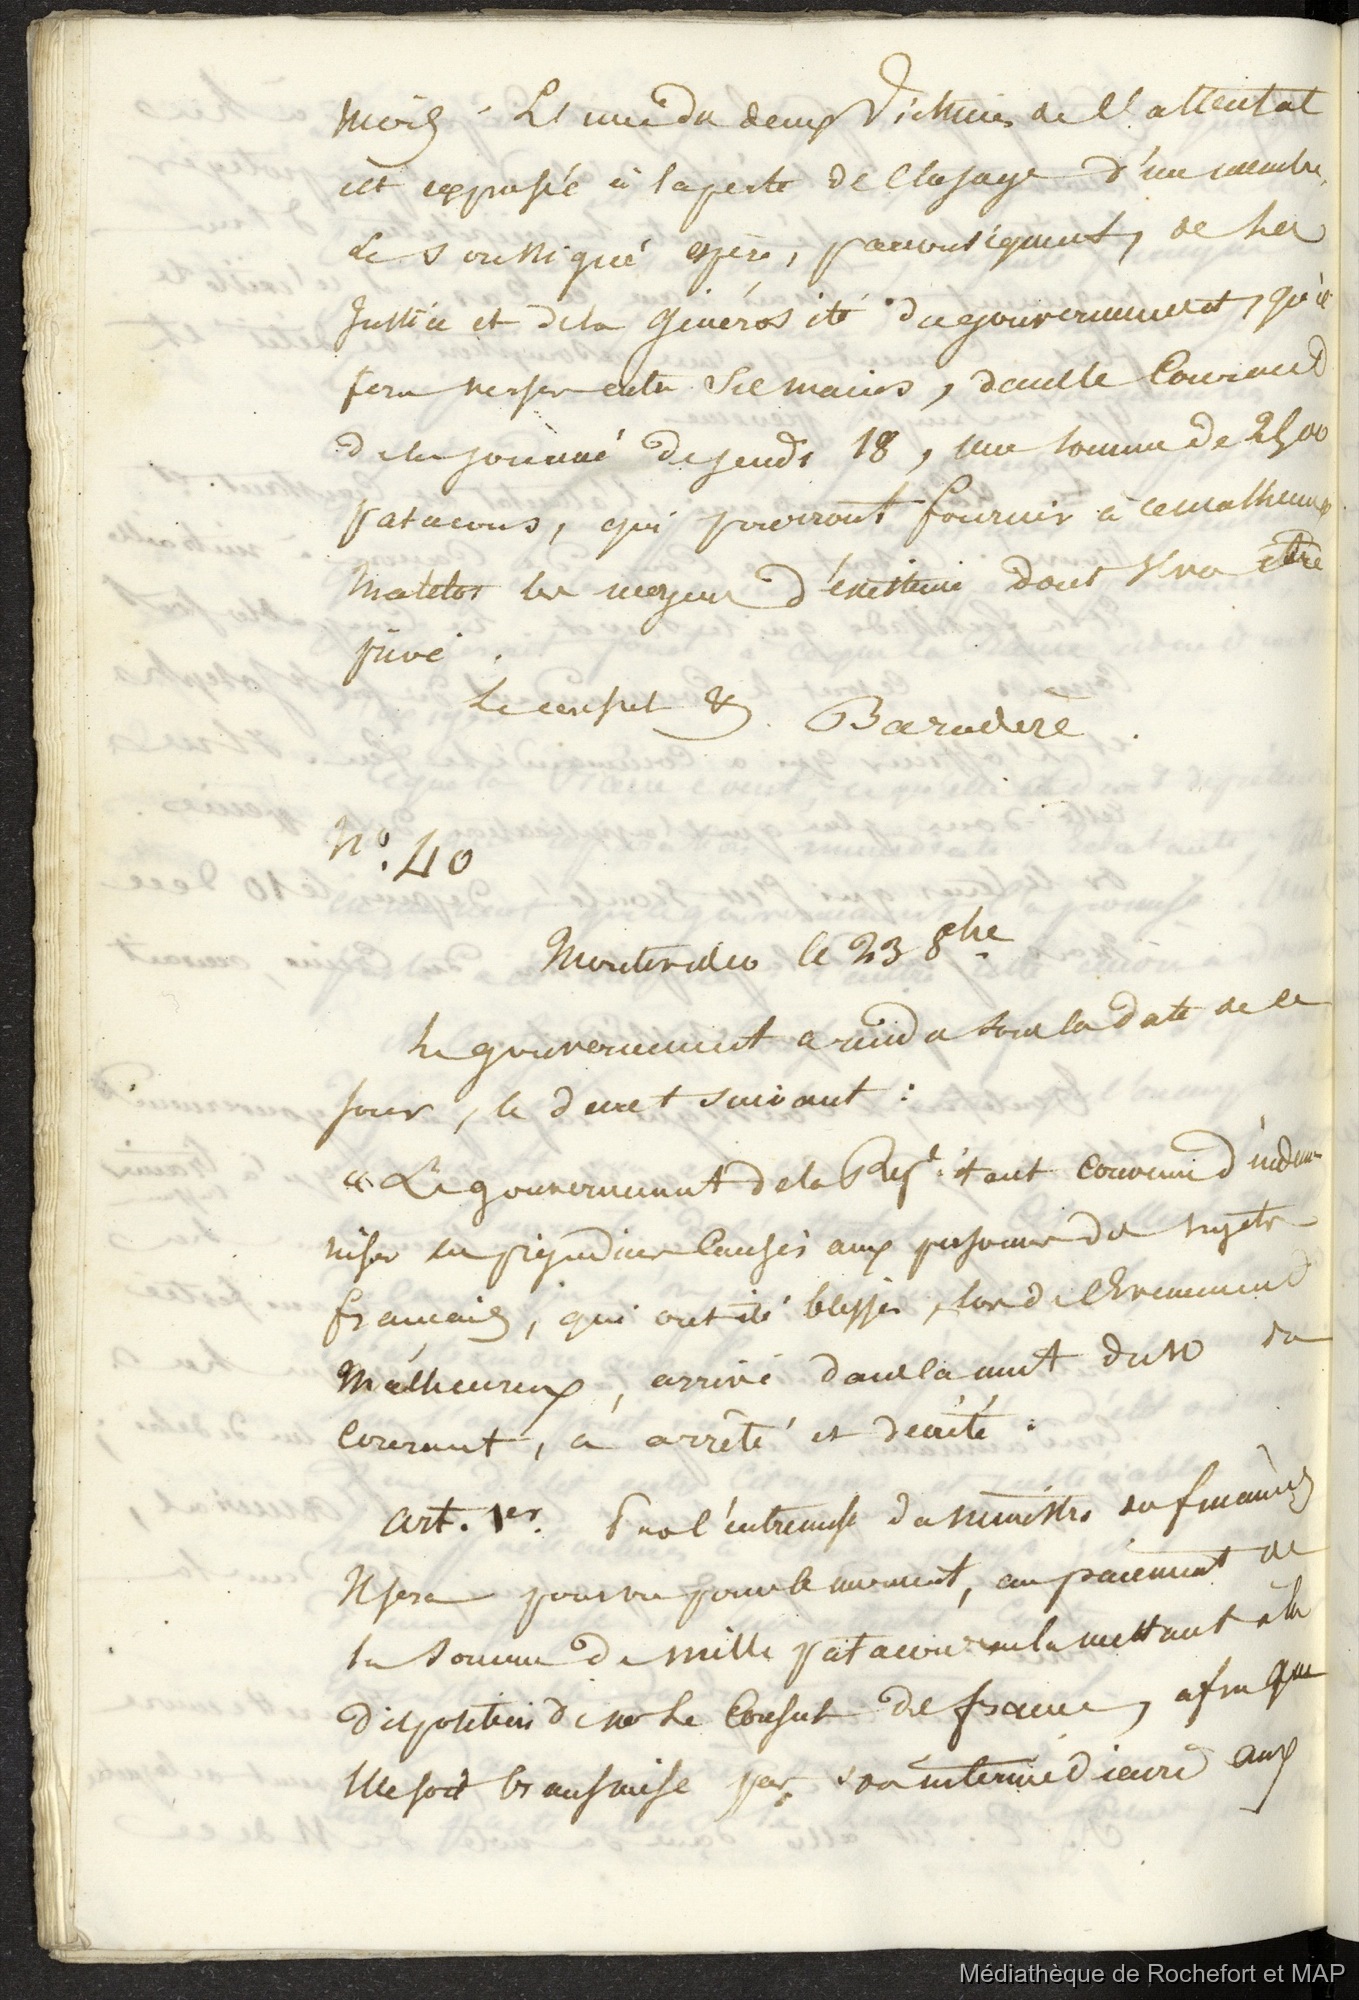 mois. L'une des deux victimes de l'attentat
est exposée à la perte de l'usage d'un membre.
Le soussigné espère, par conséquent, de la
justice et de la générosité du gouvernement, qu'il
fera verser entre ses mains, dans le courant
de la journée de jeudi 18, une somme de 2500
patacons, qui pourront fournir à ce malheureux
matelot les moyens d'existence dont il va être
privé.
Le consul &. Baradère.
N.° 40
Montevideo le 23 8bre.
Le gouvernement a rendu sous la date de ce
jour, le decret suivant :
« Le gouvernement de la Rep.e étant convenu d'indem
niser les préjudices causés aux personnes des sujets
français, qui ont été blessés, lors de l'Evenement
malheureux, arrivé dans la nuit du 10 du
courant, a arrêté et decrété :
Art. 1er. Par l'entremise du ministre des finances
il sera pourvu pour le moment, au paiement de
la somme de mille patacons en la mettant à la
disposition de mr le Consul de france, afin que
elle soit transmise par son intermédiaire aux
Médiathèque de Rochefort et MAP